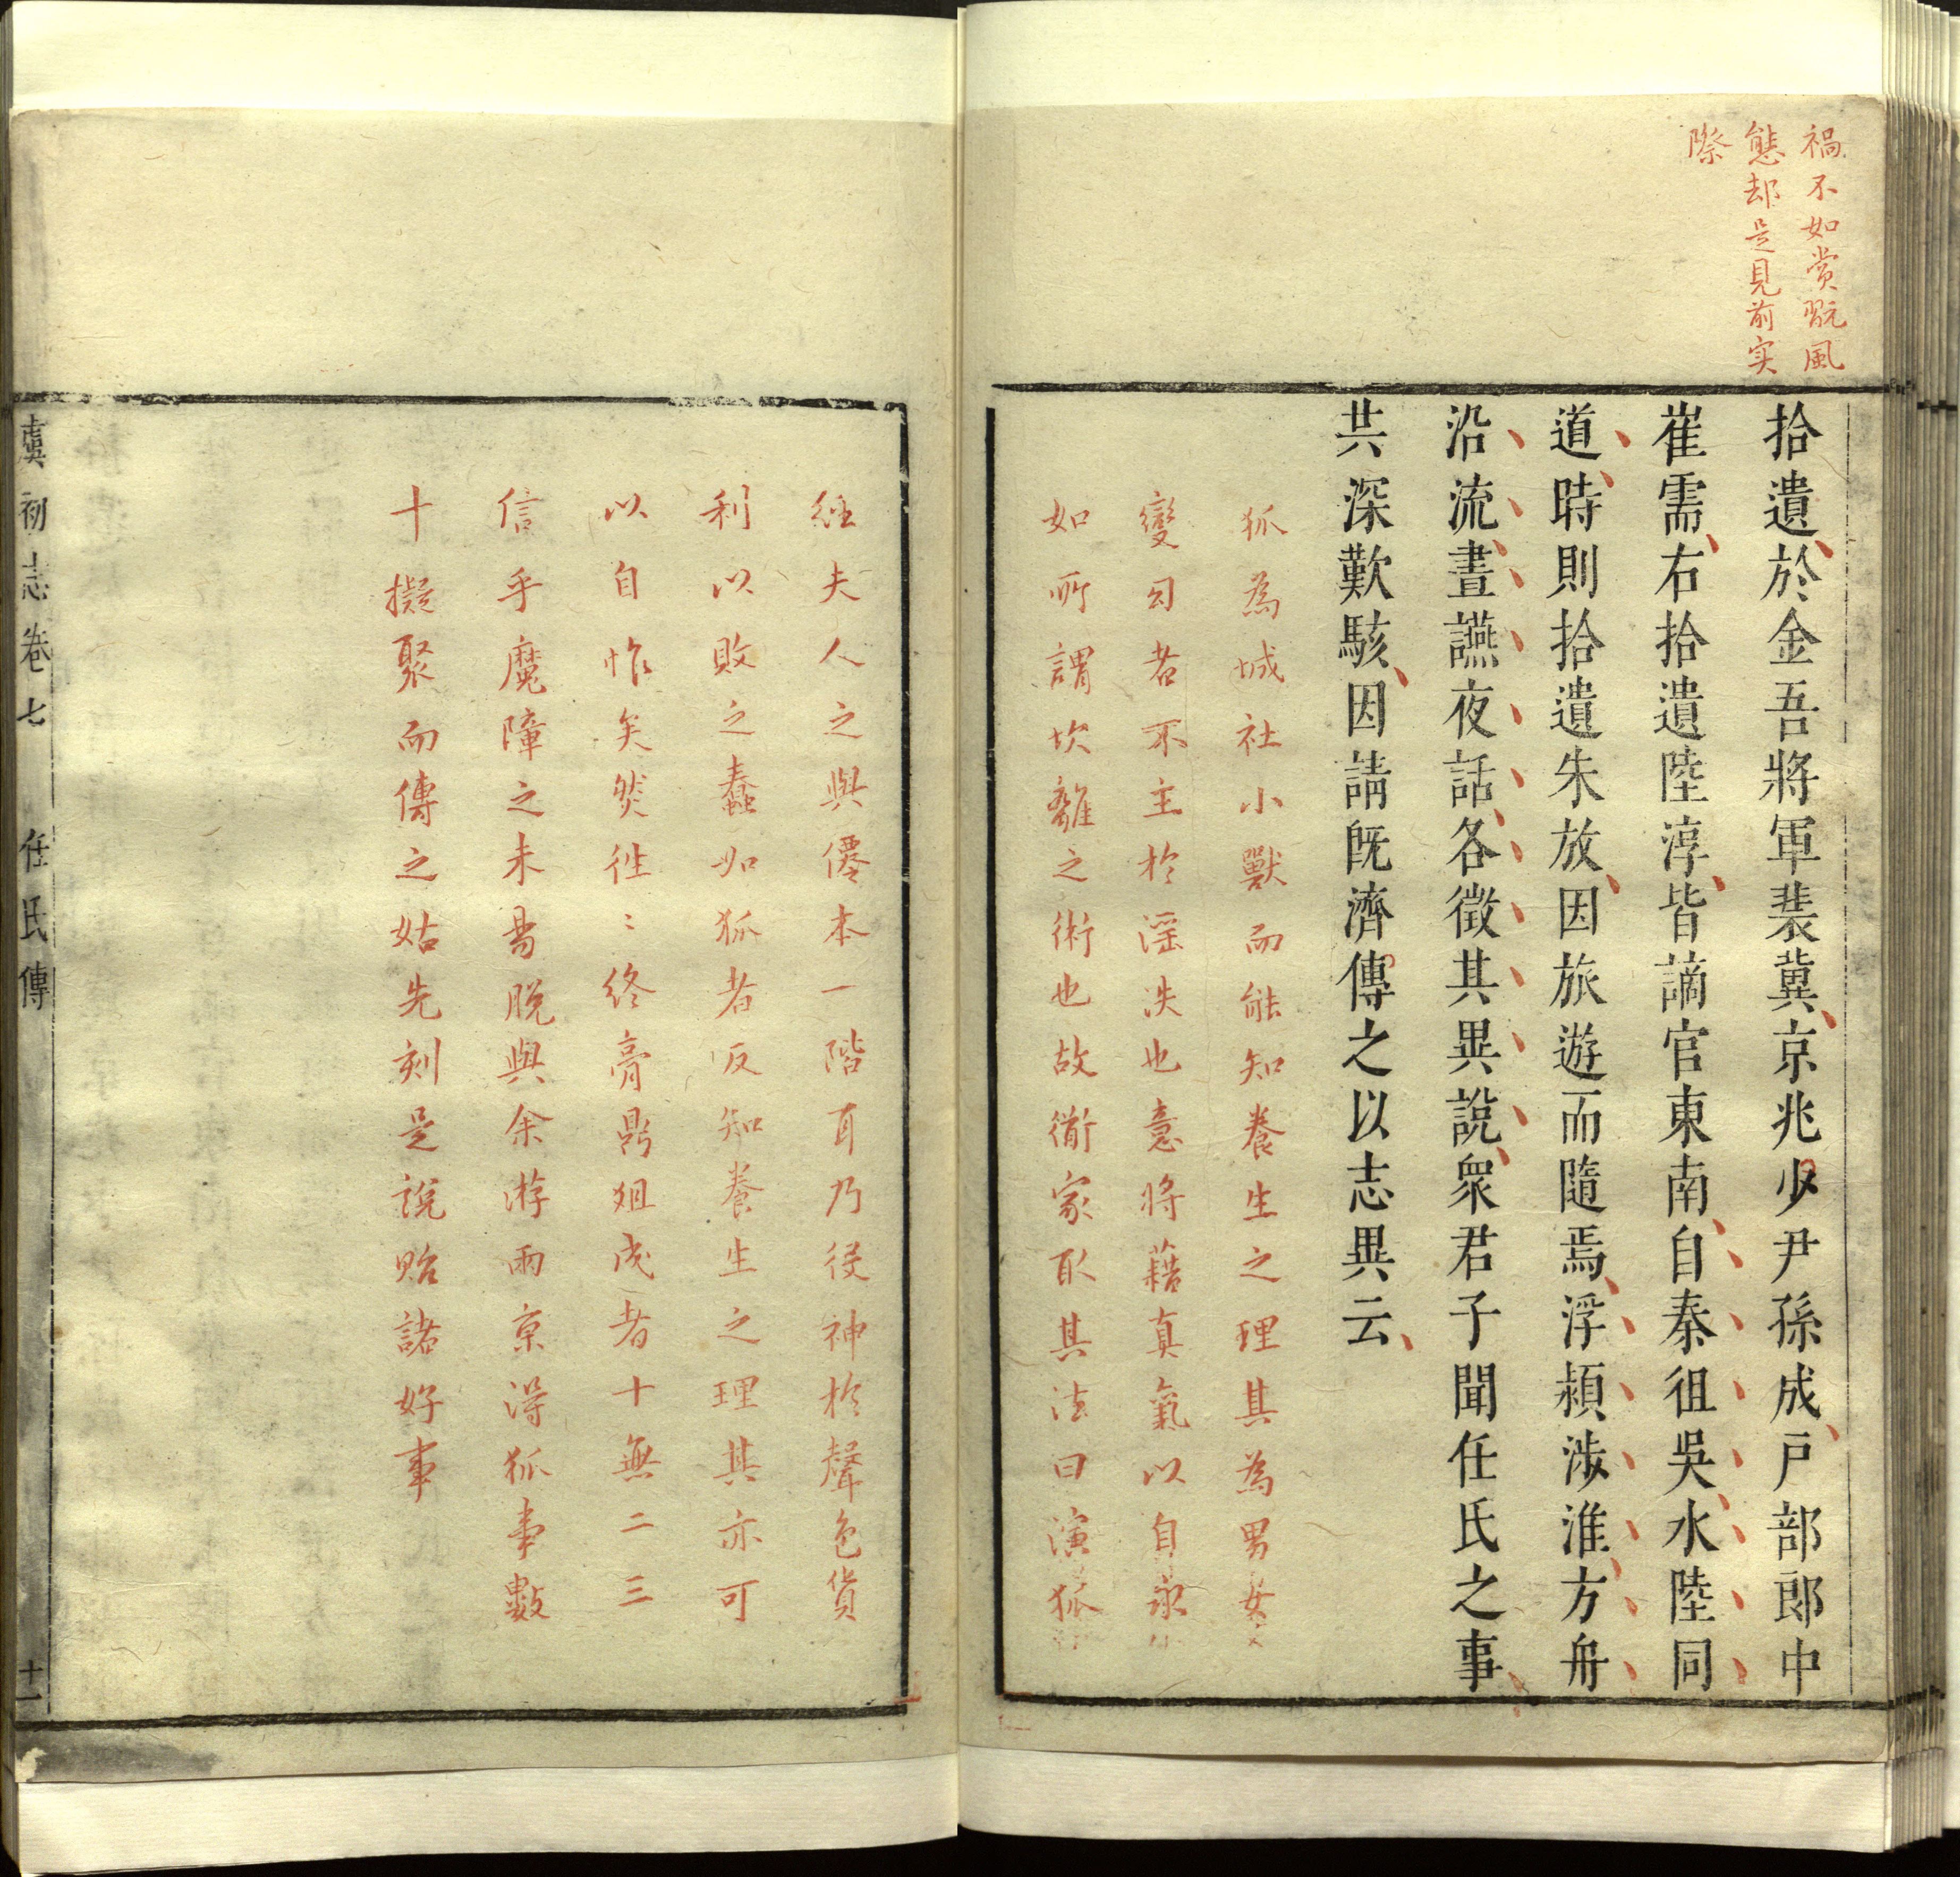 禍不如賞翫風
態却是見前实
際
拾遺於金吾將軍裴冀京兆少尹孫成戸部郎中
崔需右拾遺陸淳皆謫官東南自秦徂吳水陸同
道時則拾遺朱放因旅遊而隨焉浮頴涉淮方舟
沿流晝讌夜話各徵其異說衆君子聞任氏之事
共深歎駭因請旣濟傳之以志異云
狐為城社小獸而能知養生之理其為男女
變幻者不主於滛泆也意將藉真氣以自永
如所謂坎離之術也故衜家取其法曰演狐
經夫人之與僊本一階耳乃役神於聲色貨
利以敗之蠢如狐者反知養生之理其亦可
以自怍矣然徃〻終膏鼎俎成者十無二三
信乎魔障之未易脫與余游兩京得狐事數
十擬聚而傳之姑先刻是說貽諸好事
虞初志卷七 任氏傳 十一